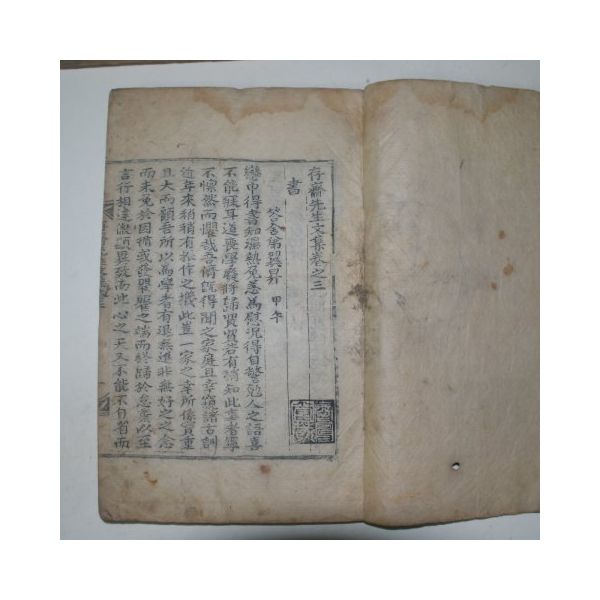 存齋先生文集卷之三
書
答舍弟翼昇 甲午
中得書知濕熱免恙爲慰况得自警勉人之語喜
不能 耳道喪學廢將歸貿貿若有稍知此意者寧
不懍然而懼哉吾儕旣得聞之家庭且幸窺諸古訓
近年來稍稍有振作之機此豈一家之幸所係實重
且大而顧吾所以爲學者有退無進非無好之之念
而未免於因循或發舉舉之端而終歸於怠惫以至
言行相違 頭異致而此心之天又不能不自省而